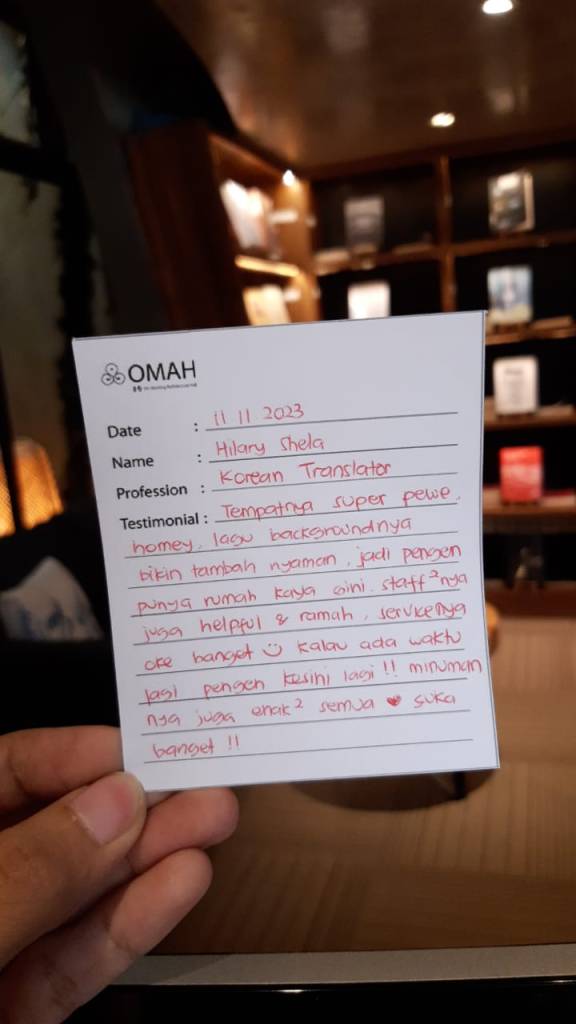 OMAH
Date : 11 11 2023
Name : Hilary Shela
Profession : Korean Translator
Testimonial : Tempatnya super pewe,
homey, lagu backgroundnya
bikin tambah nyaman, jadi pengen
punya rumah kaya gini. staff²nya
juga helpful & ramah, servicenya
oke banget ☺ kalau ada waktu
lagi pengen kesini lagi !! minuman
nya juga enak² semua ♥ suka
banget !!